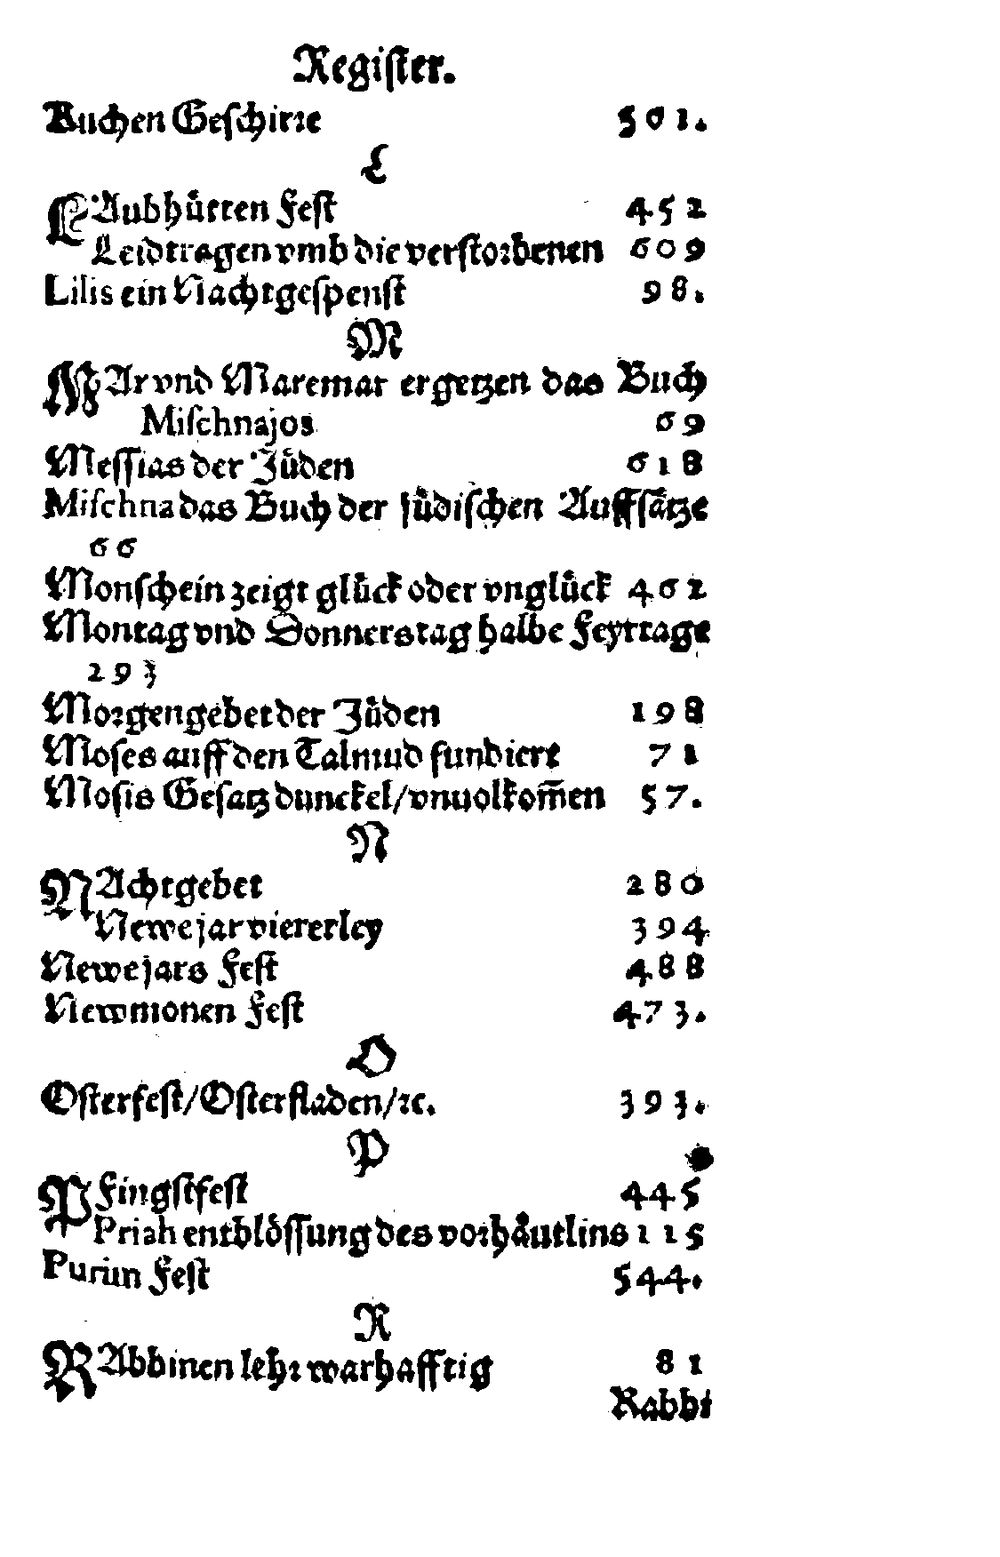 Register.
Kuchen Geschirre 501.
L
LAubhütten Fest 452
Leidtragen vmb die verstorbenen 609
Lilis ein Nachtgespenst 98.
M
MAr vnd Maremar ergetzen das Buch
Mischnajos 69
Messias der Jüden 618
Mischna das Buch der Jüdischen Auffsätze
66
Monschein zeigt glück oder vnglück 462
Montag vnd Donnerstag halbe Feyrtage
293
Morgengebet der Jüden 198
Moses auff den Talmud fundiert 71
Mosis Gesatz dunckel/vnuolkom̃en 57.
N
NAchtgebet 280
Newe jar viererley 394
Newe jars Fest 488
Newmonen Fest 473.
O
Osterfest/Osterfladen/ꝛc. 393.
P
PFingstfest 445
Priah entblössung des vorhäutlins 115
Purim Fest 544.
R
RAbbinen lehr warhafftig 81
Rabbi